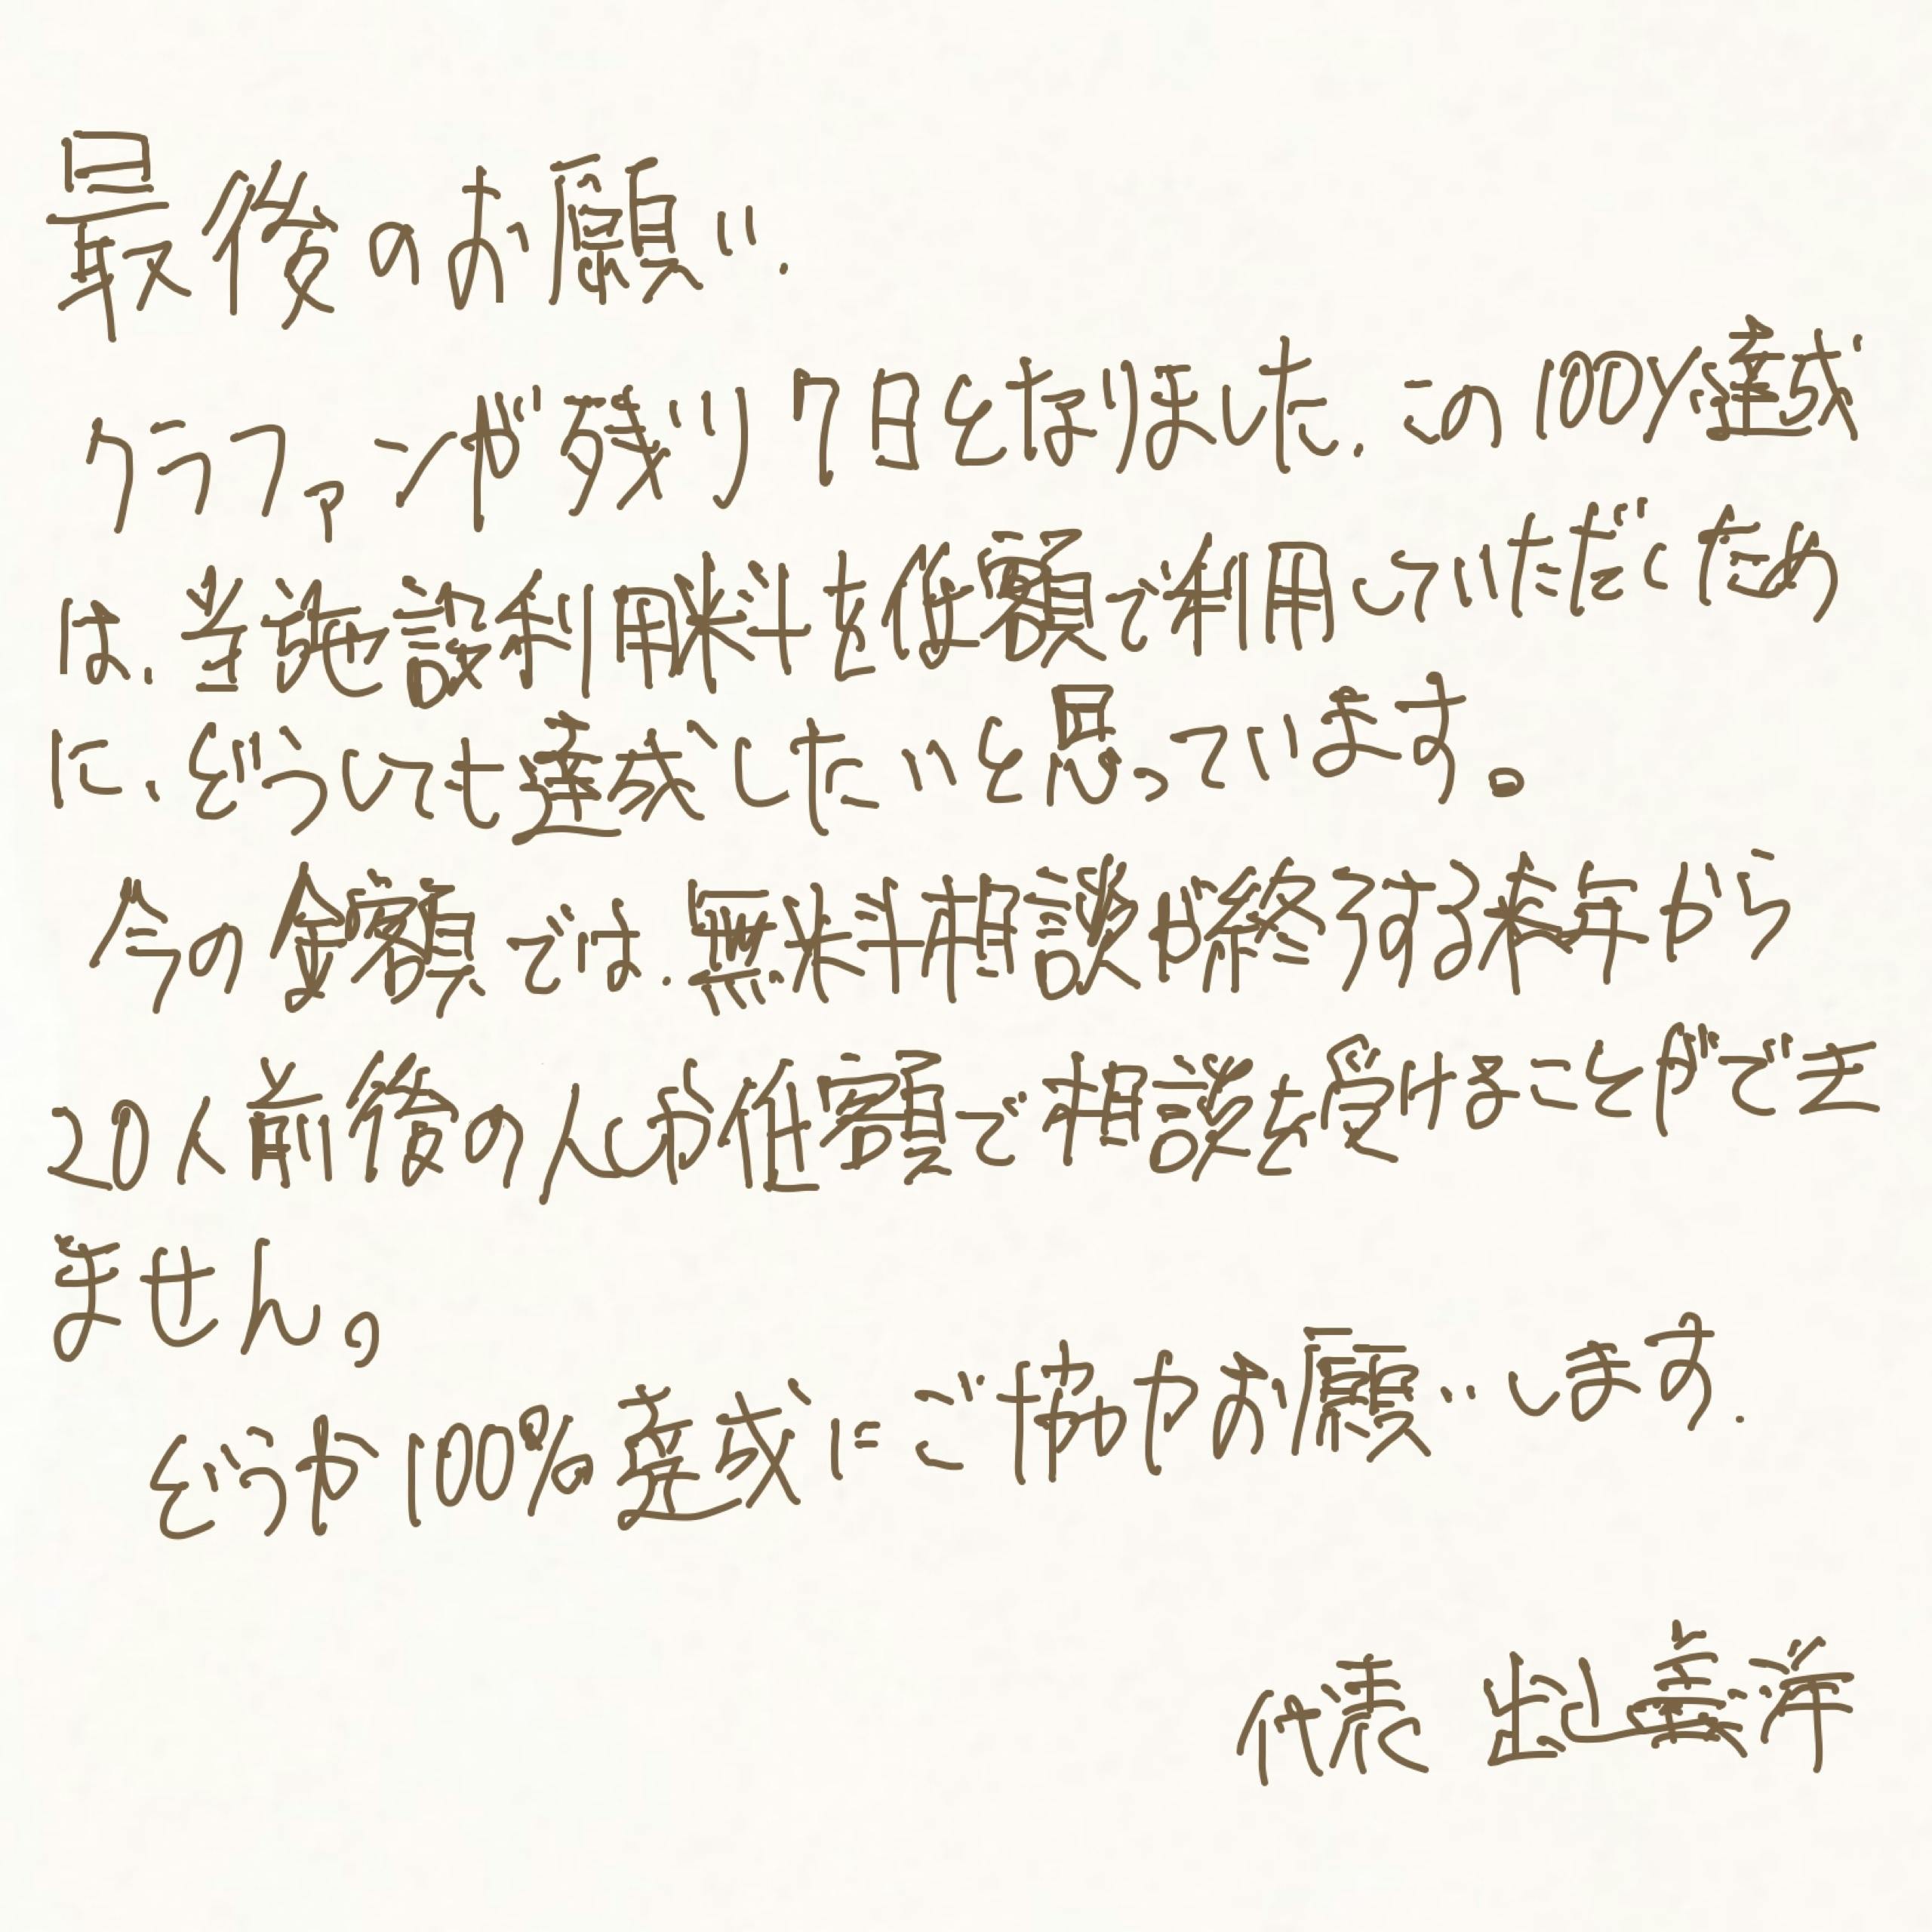 最後のお願い.
クラファンが残り7日となりました.この100%達成
は、当施設利用料を低額で利用していただくため
に、どうしても達成したいと思っています。
今の金額では、無料相談が終了する来年から
20人前後の人しか低額で相談を受けることができ
ません。
どうか100%達成にご協力お願いします.
代表 出山義洋